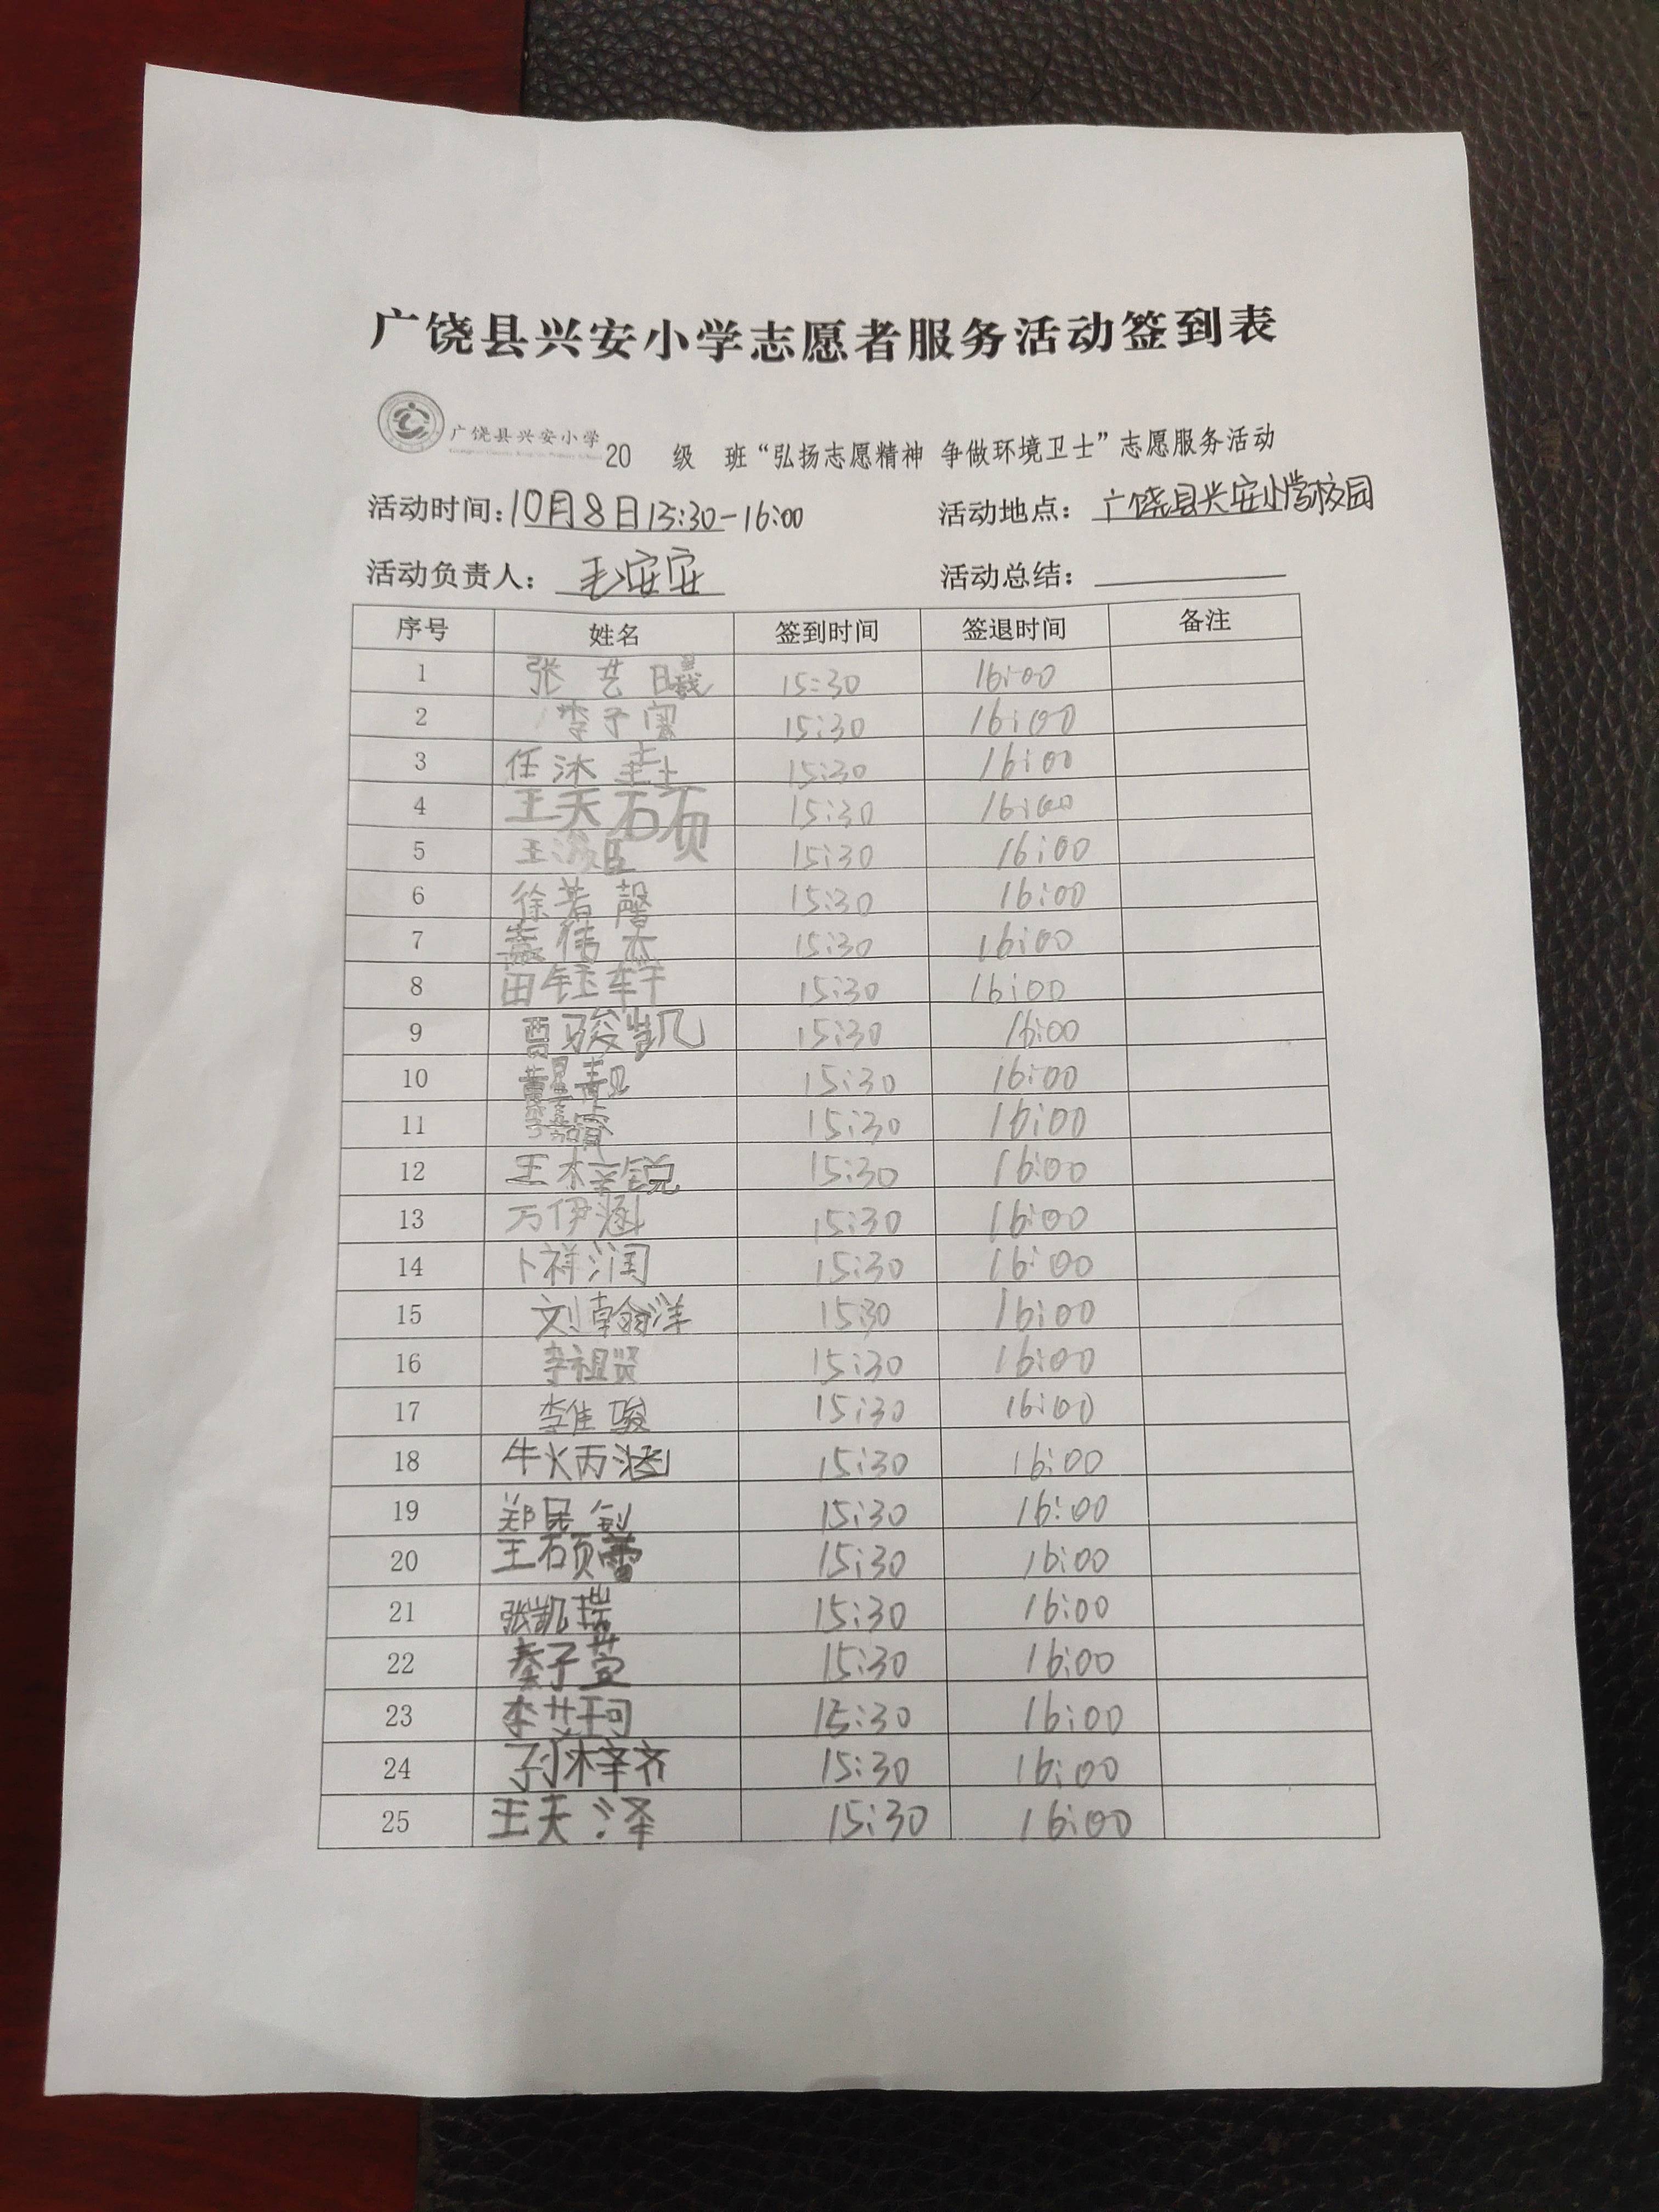 广饶县兴安小学志愿者服务活动签到表
广饶县兴安小学 20 级 班“弘扬志愿精神 争做环境卫士”志愿服务活动
活动时间：10月8日15:30-16:00 活动地点：广饶县兴安小学校园
活动负责人：毛安安 活动总结：
序号 姓名 签到时间 签退时间 备注
1 张艺曦 15:30 16:00
2 李子寓 15:30 16:00
3 任沐垚 15:30 16:00
4 王天硕 15:30 16:00
5 王浚臣 15:30 16:00
6 徐若馨 15:30 16:00
7 伟杰 15:30 16:00
8 田钰轩 15:30 16:00
9 贾骏凯 15:30 16:00
10 靓 15:30 16:00
11 15:30 16:00
12 王梓锐 15:30 16:00
13 万伊涵 15:30 16:00
14 卜祥润 15:30 16:00
15 刘翰洋 15:30 16:00
16 李祖贤 15:30 16:00
17 李佳骏 15:30 16:00
18 牛炳涵 15:30 16:00
19 郑昆钊 15:30 16:00
20 王硕蕾 15:30 16:00
21 张凯瑞 15:30 16:00
22 秦子萱 15:30 16:00
23 李艾珂 15:30 16:00
24 孙梓齐 15:30 16:00
25 王天泽 15:30 16:00